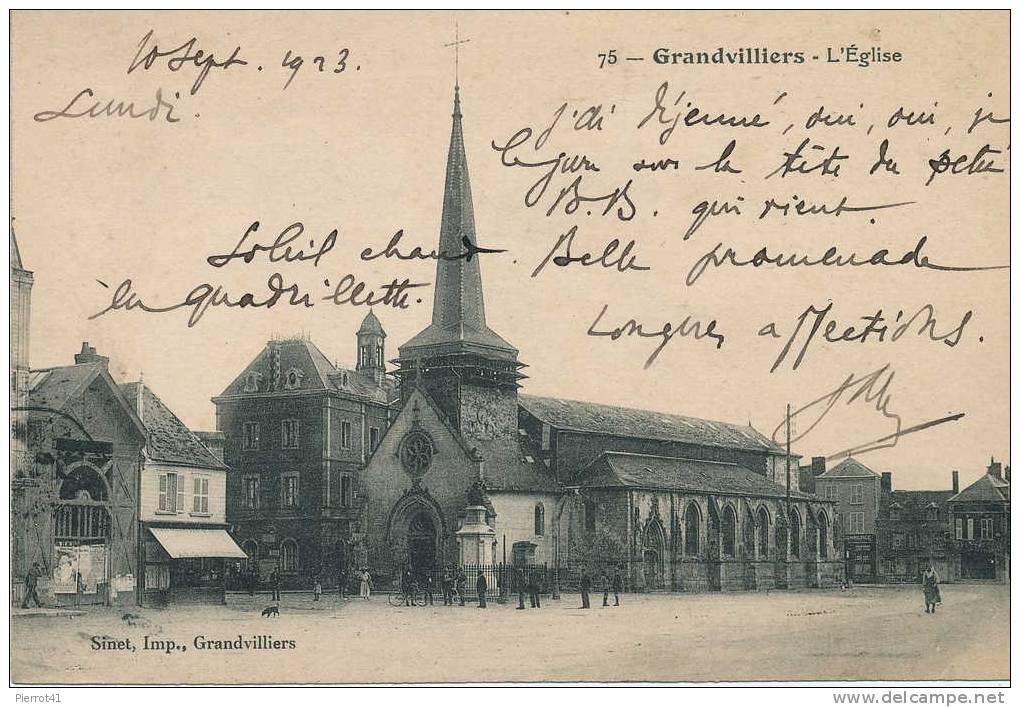 10 Sept. 1923.
Lundi.
75 — Grandvilliers - L'Église
j'ai déjeuné, oui, oui, je
le jure sur la tête du petit
B.B. qui vient.
Soleil chaud. Belle promenade
en quadrillette.
Longues affections.
Sinet, Imp., Grandvilliers
Pierrot41
http://www.delcampe.net